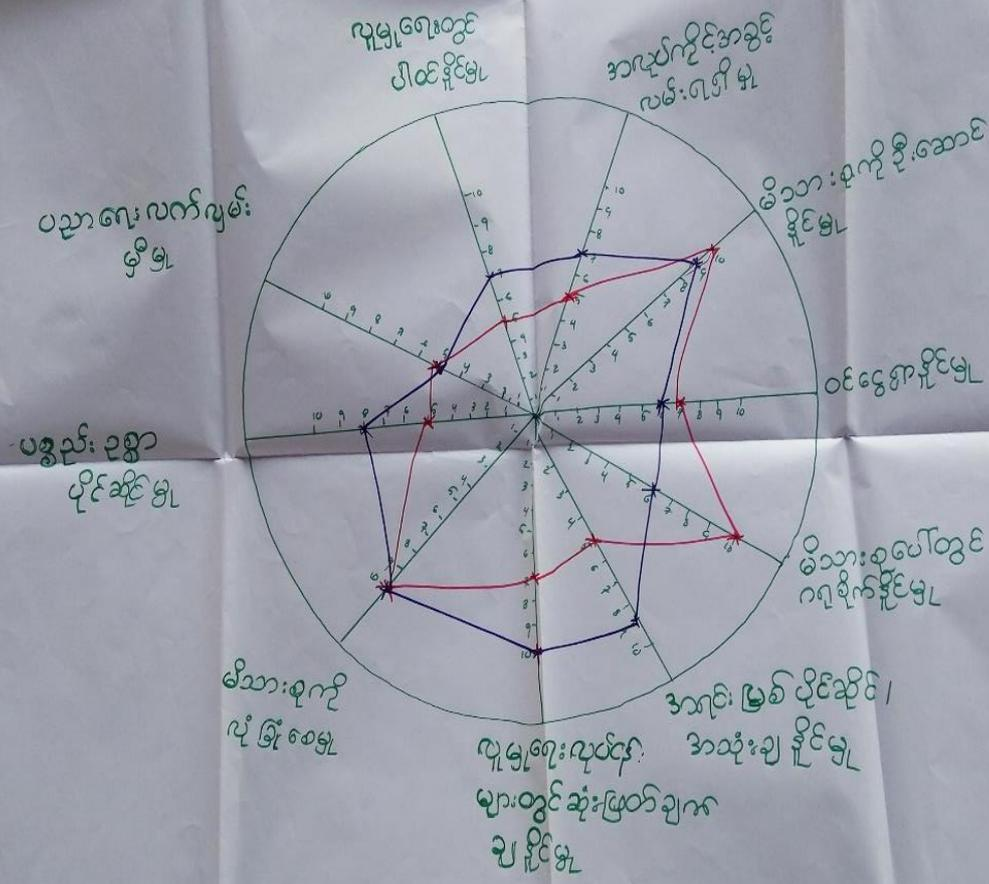 လူမှုရေးတွင်
ပါဝင်နိုင်မှု
အလုပ်ကိုင်အခွင့်
လမ်းရရှိမှု
မိသားစုကိုဦးဆောင်
နိုင်မှု
ဝင်ငွေရှာနိုင်မှု
မိသားစုပေါ်တွင်
ဂရုစိုက်နိုင်မှု
အရင်းမြစ်ပိုင်ဆိုင်/
အသုံးချနိုင်မှု
လူမှုရေးလုပ်ငန်း
များတွင်ဆုံးဖြတ်ချက်
ချနိုင်မှု
မိသားစုကို
လုံခြုံစေမှု
ပစ္စည်းဥစ္စာ
ပိုင်ဆိုင်မှု
ပညာရေးလက်လှမ်း
မှီမှု